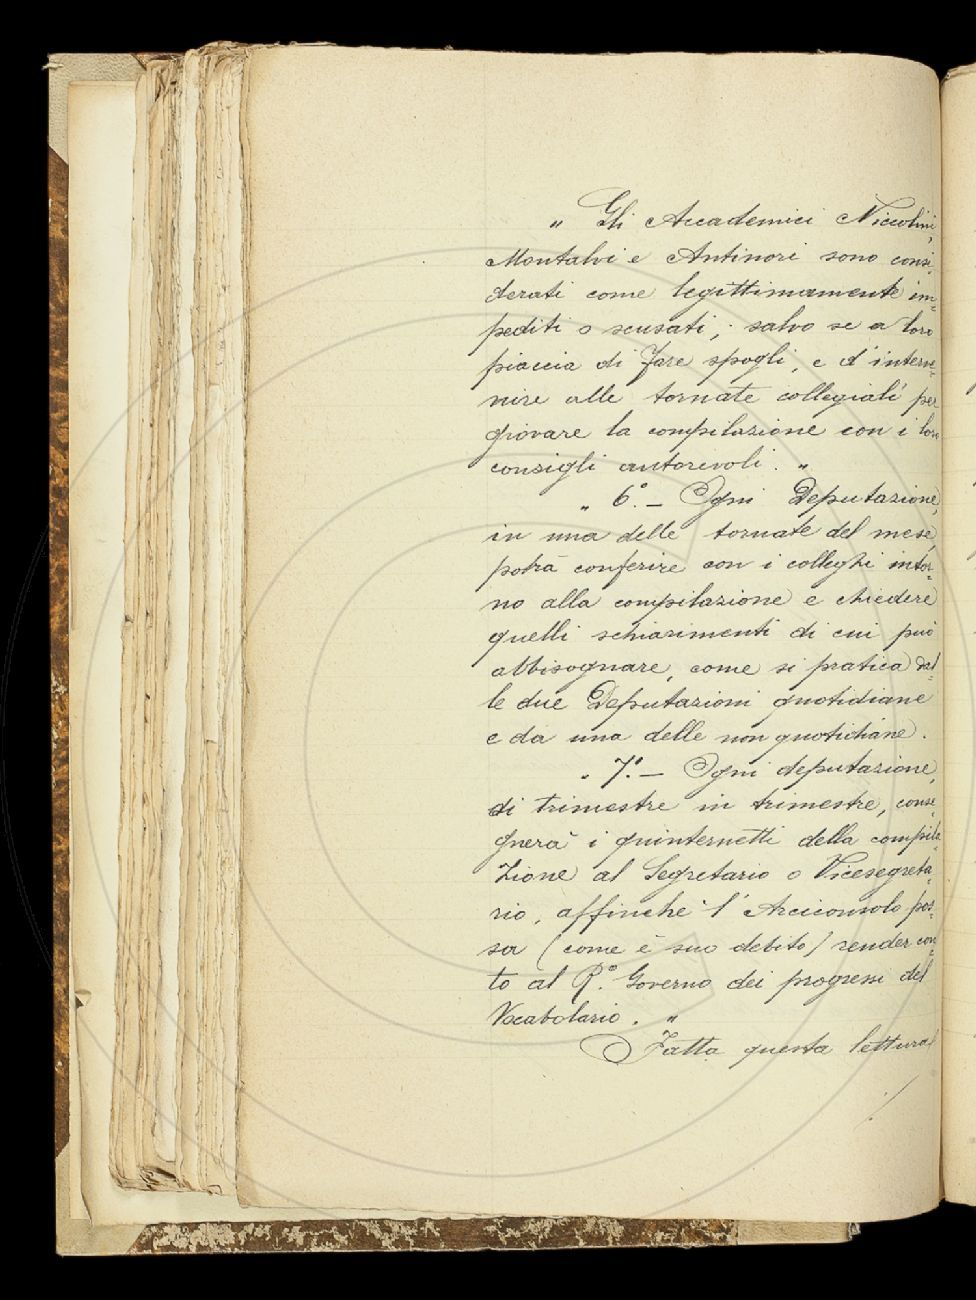 „ Gli Accademici Niccolini,
Montalvi e Antinori sono consi=
derati come legittimamente im=
pediti o scusati; salvo se a loro
piaccia di fare spogli, e d'interve=
nire alle tornate collegiali per
giovare la compilazione con i loro
consigli autorevoli. „
„ 6.º — Ogni Deputazione,
in una delle tornate del mese,
potrà conferire con i colleghi intor=
no alla compilazione e chiedere
quelli schiarimenti di cui può
abbisognare, come si pratica dal=
le due Deputazioni quotidiane
e da una delle non quotidiane.
„ 7.º — Ogni deputazione,
di trimestre in trimestre, conse=
gnerà i quinternetti della compila=
zione al Segretario o Vicesegreta=
rio, affinchè l'Arciconsolo pos=
sa (come è suo debito) render con=
to al R.º Governo dei progressi del
Vocabolario. „
Fatta questa lettura